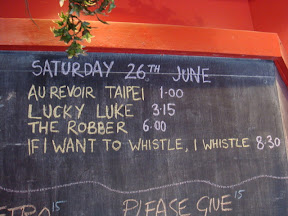 SATURDAY 26TH JUNE
AU REVOIR TAIPEI 1.00
LUCKY LUKE 3.15
THE ROBBER 6.00
IF I WANT TO WHISTLE, I WHISTLE 8.30
15 PLEASE GIVE 15